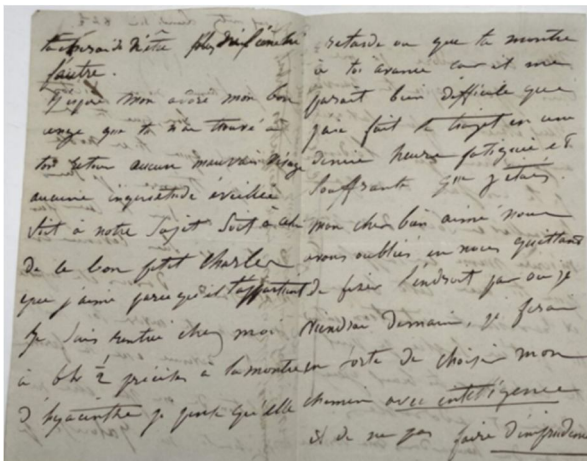 l'autre.
J'espère mon adoré mon bon
ange que tu n'as trouvé à
ton retour aucun mauvais visage
aucune inquiétude éveillée
soit à notre sujet soit à celui
de ce bon petit Charles
que j'aime parce qu'il t'appartient
Je suis rentrée chez moi
à 6h ½ précises à la montre
d'hyacinthe je pense qu'elle
retarde ou que ta montre
à toi avance car il me
parait bien difficile que
j'aie fait le trajet en une
demie heure fatiguée et
souffrante que j'étais
mon cher bien aimé nous
avons oubliés en nous quittant
de fixer l'endroit par où je
viendrai demain, je ferai
en sorte de choisir mon
chemin avec intelligence
et de ne pas faire d'imprudence